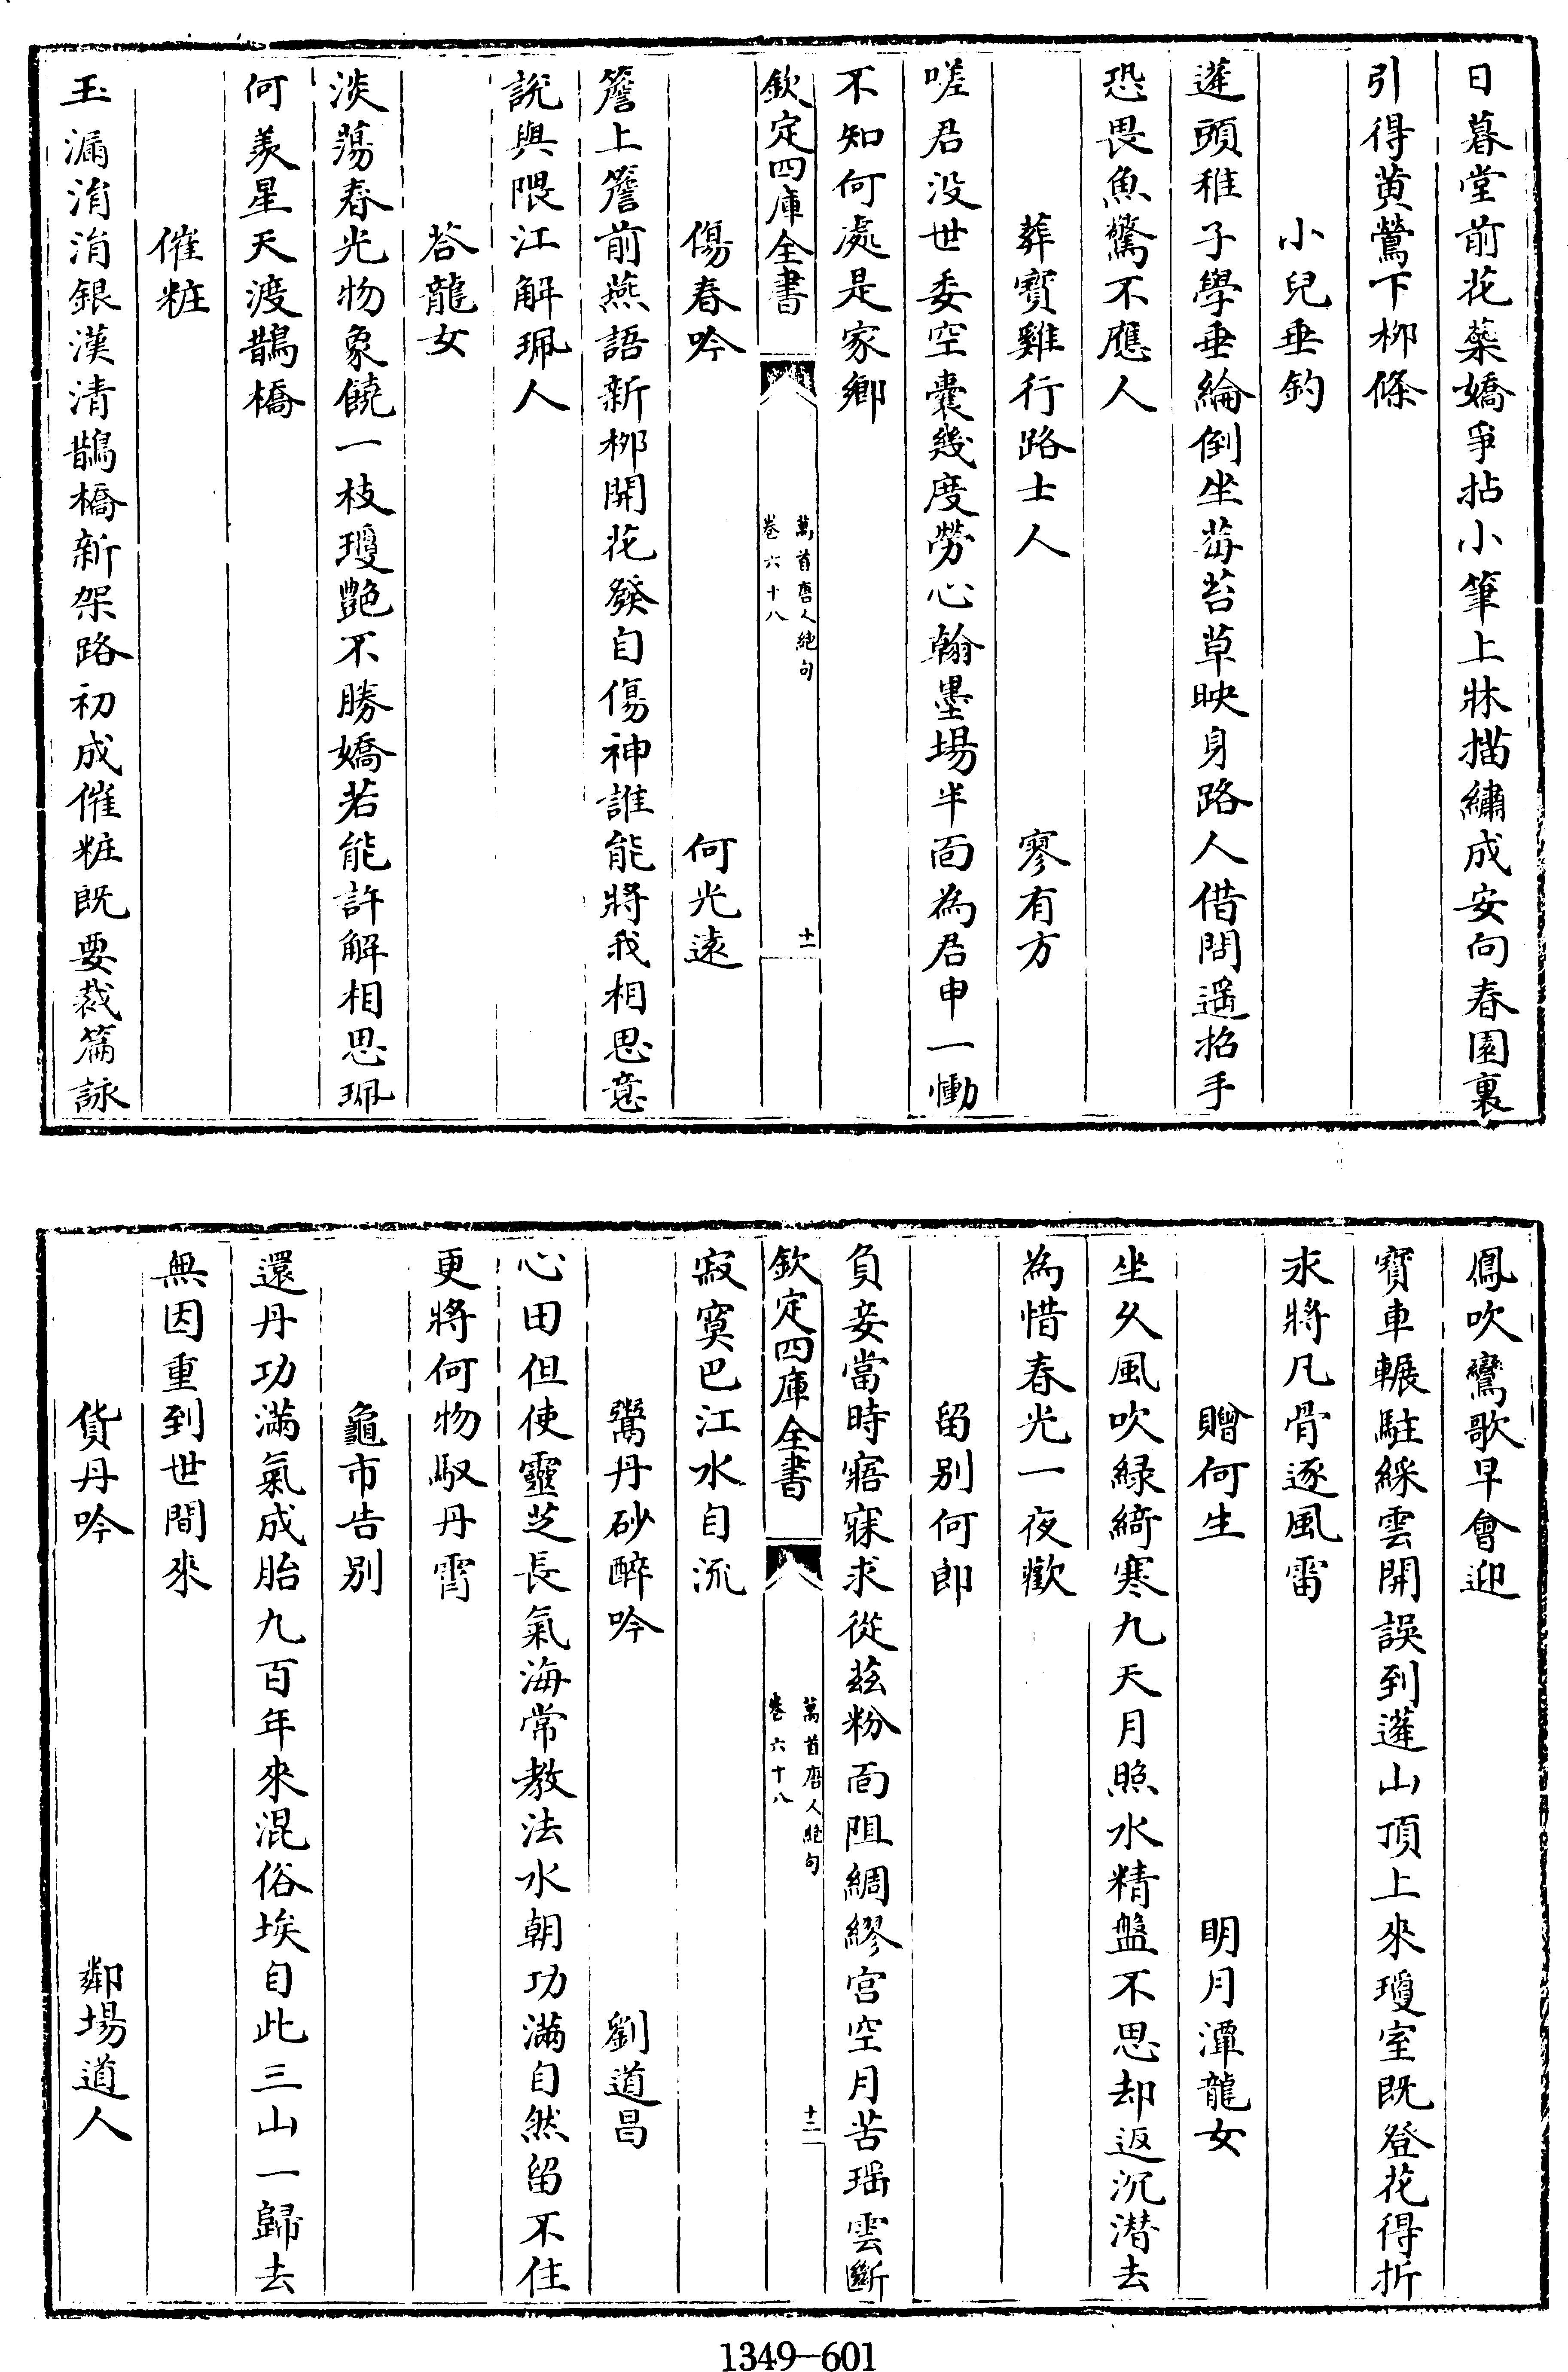 日暮堂前花蘂嬌爭拈小筆上牀描繡成安向春園裏
引得黄鶯下柳條
小兒垂釣
蓬頭稚子學垂綸倒坐莓苔草映身路人借問遥招手
恐畏魚驚不應人
葬寳雞行路士人 廖有方
嗟君没世委空囊幾度勞心翰墨場半面為君申一慟
不知何處是家鄉
欽定四庫全書 萬首唐人絶句 卷六十八 十一
傷春吟 何光遠
簷上簷前燕語新柳開花發自傷神誰能將我相思意
說與隈江解珮人
荅龍女
淡蕩春光物象饒一枝瓊艶不勝嬌若能許解相思珮
何羨星天渡鵲橋
催粧
玉漏涓涓銀漢清鵲橋新架路初成催粧既要裁篇詠
鳳吹鸞歌早會迎
寳車輾駐綵雲開誤到蓬山頂上來瓊室既登花得折
永將凡骨逐風雷
贈何生 明月潭龍女
坐久風吹緑綺寒九天月照水精盤不思却返沉潜去
為惜春光一夜歡
留别何郎
負妾當時寤寐求從兹粉面阻綢繆宫空月苦瑶雲斷
欽定四庫全書 萬首唐人絶句 卷六十八 十二
寂寞巴江水自流
鬻丹砂醉吟 劉道昌
心田但使靈芝長氣海常教法水朝功滿自然留不住
更將何物馭丹霄
龜市告别
還丹功滿氣成胎九百年來混俗埃自此三山一歸去
無因重到世間來
貨丹吟 鄴場道人
1349—601